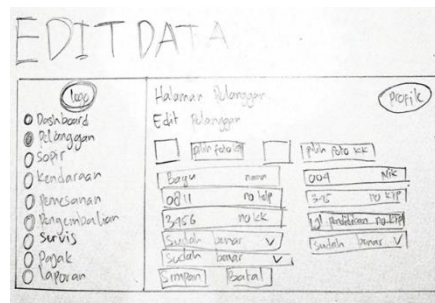 EDIT DATA
logo
Dashboard
Pelanggan
Sopir
Kendaraan
Pemesanan
Pengembalian
Servis
Pajak
Laporan
Halaman Pelanggan
Profik
Edit Pelanggan
pilih foto ktp
pilih foto kk
Bagu nama
004 Nik
0811 no telp
345 no KTP
3456 no kk
Pendidikan no KTP
Sudah benar V
Sudah benar V
Sudah benar V
Simpan Batal